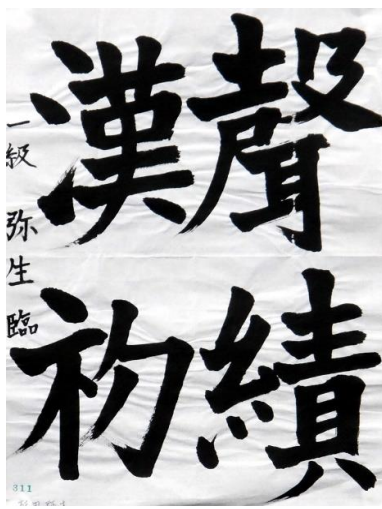 聲績
漢初
一級 弥生臨
311